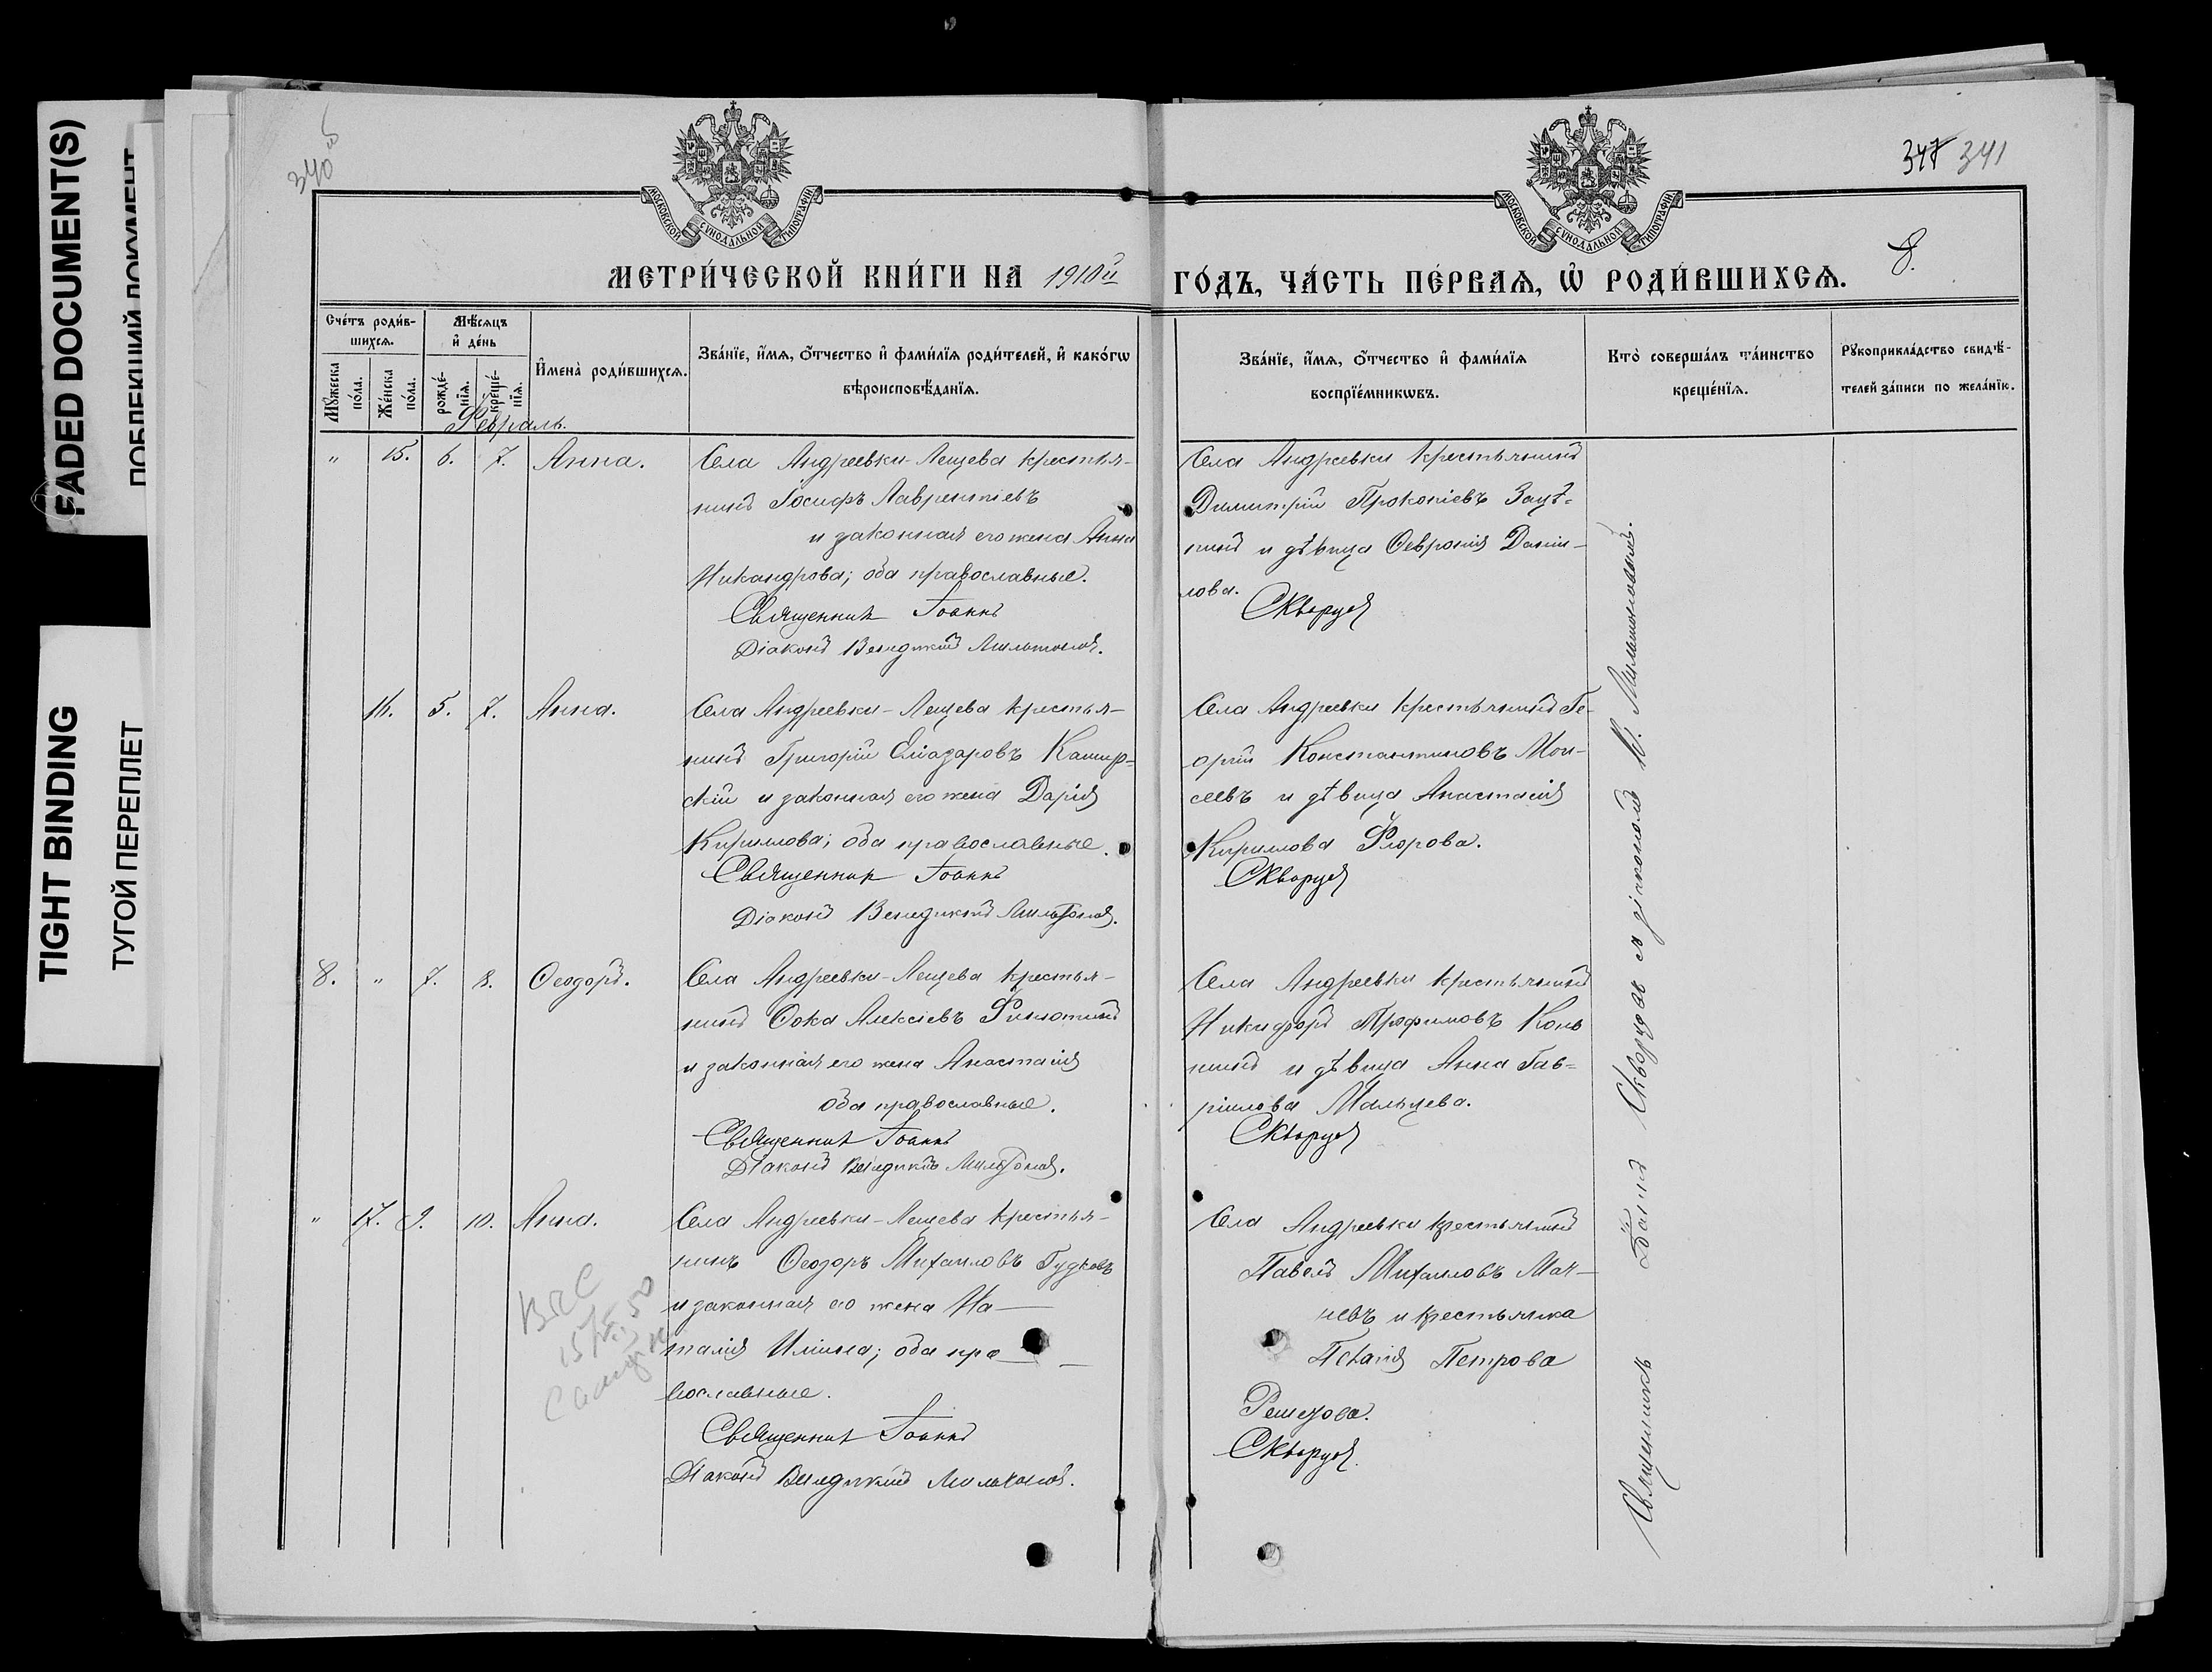 FADED DOCUMENT(S)
ПОБЛЕКШИЙ ДОКУМЕНТ
TIGHT BINDING
ТУГОЙ ПЕРЕПЛЕТ
340 об
347 341
8.
МОСКОВСКОЙ СѴНОДАЛЬНОЙ ТИПОГРАФІИ.
МОСКОВСКОЙ СѴНОДАЛЬНОЙ ТИПОГРАФІИ.
МЕТРИ́ЧЕСКОЙ КНИ́ГИ НА 1910й ГО́ДЪ, ЧА́СТЬ ПЕ́РВАѦ, Ѡ҆ РОДИ́ВШИХСѦ.
Сче́тъ роди́в-
шихсѧ.
Мꙋ́жеска по́ла.
Же́нска по́ла.
Мѣ́сѧцъ
и҆ де́нь
рожде́-
нїѧ.
креще́-
нїѧ.
И҆мена̀ роди́вшихсѧ.
Зва́нїе, и҆́мѧ, ѻ҆́тчество и҆ фами́лїѧ роди́телей, и҆ како́гѡ
вѣроисповѣ́данїѧ.
Зва́нїе, и҆́мѧ, ѻ҆́тчество и҆ фами́лїѧ
воспрїе́мникѡвъ.
Кто̀ соверша́лъ та́инство
креще́нїѧ.
Рꙋкоприкла́дство свидѣ́-
телей за́писи по жела́нїю.
Февраль.
" 15. 6. 7. Анна.
Села Андреевки-Лещева крестья-
нинъ Іосифъ Лаврентіевъ
и законная его жена Анна
Никандрова; оба православные.
Священник Іоаннъ
Діаконъ Венедиктъ
Села Андреевки крестьянинъ
Димитрій Прокопіевъ Зацѣ-
пинъ и дѣвица Ѳевронія Дании-
лова.
Скворцов
16. 5. 7. Анна.
Села Андреевки-Лещева крестья-
нинъ Григорій Еліазаровъ Кашир-
скій и законная его жена Дарія
Кириллова; оба православные.
Священник Іоаннъ
Діаконъ Венедиктъ
Села Андреевки крестьянинъ Ге-
оргій Константиновъ Мои-
сеевъ и дѣвица Анастасія
Кириллова Флорова.
Скворцов
8. " 7. 8. Ѳеодоръ.
Села Андреевки-Лещева крестья-
нинъ Ѳока Алексіевъ
и законная его жена Анастасія
оба православные.
Священник Іоаннъ
Діаконъ Венедиктъ
Села Андреевки крестьянинъ
Никифоръ Трофимовъ Конь
нинъ и дѣвица Анна Гав-
ріилова Мальцева.
Скворцов
" 17. 9. 10. Анна.
Села Андреевки-Лещева крестья-
нинъ Ѳеодоръ Михаиловъ Гудковъ
и законная его жена На-
талія Иліина; оба пра-
вославные.
Священник Іоаннъ
Діаконъ Венедиктъ
Села Андреевки крестьянинъ
Павелъ Михаиловъ
и крестьянка
Петрова
Скворцов.
Священникъ Іоаннъ Скворцовъ съ діакономъ В.